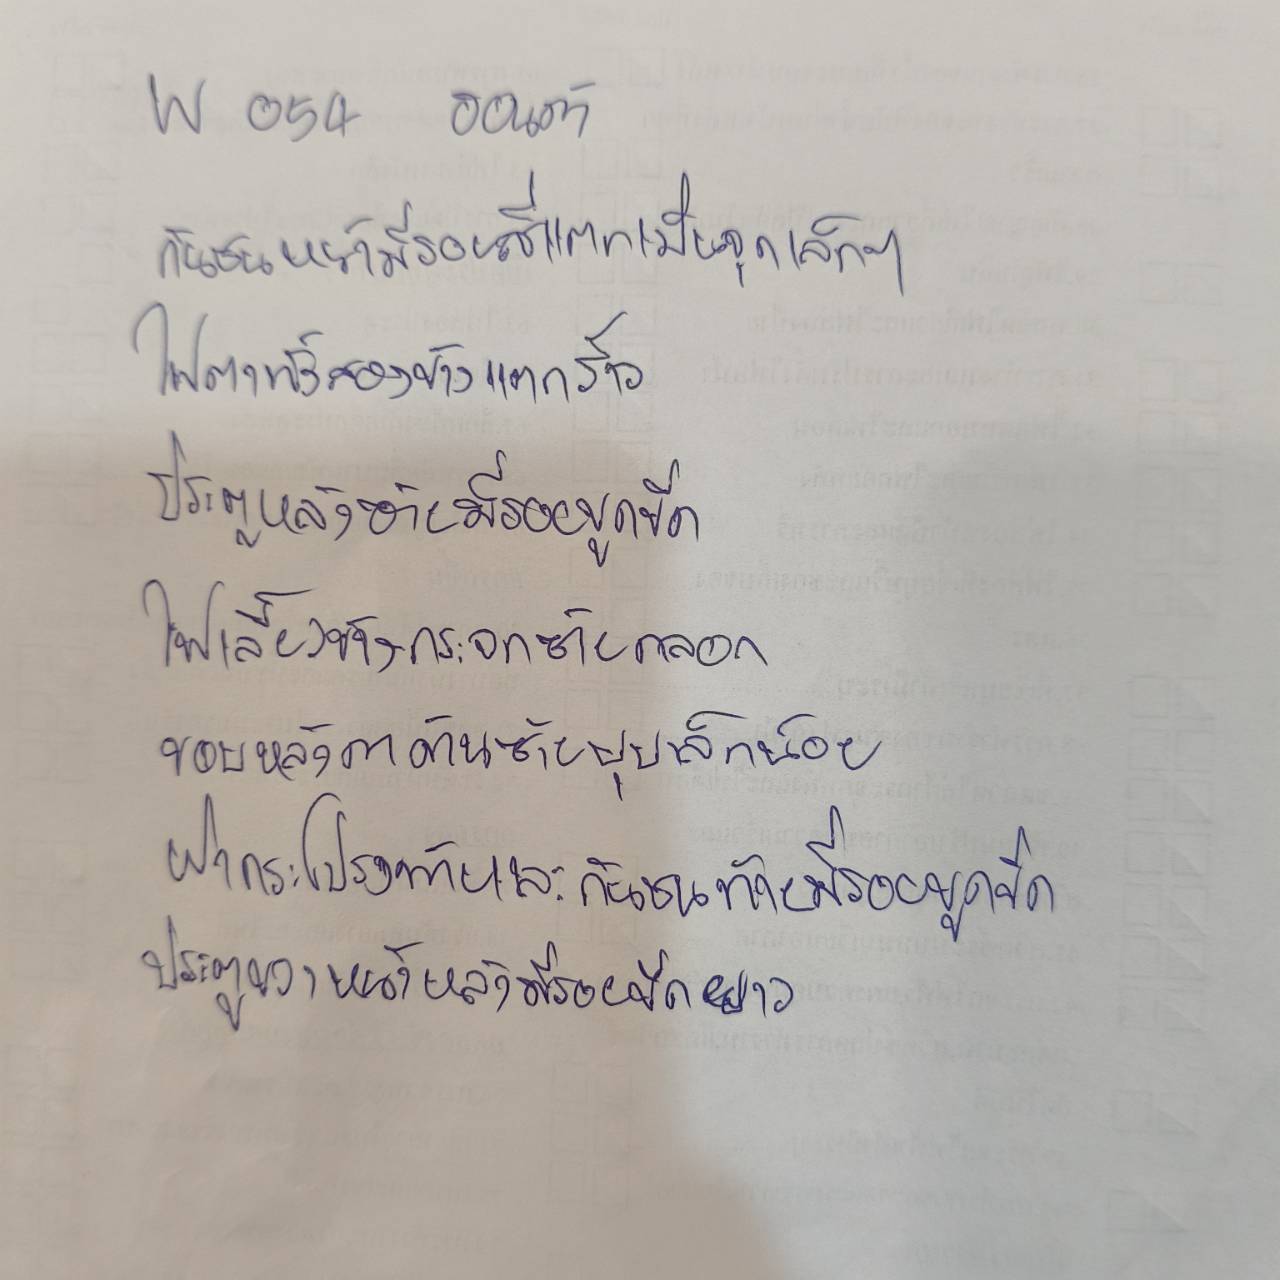 W 054 ฮอนด้า
กันชนหน้ามีรอยสีแตกเป็นจุดเล็กๆ
ไฟตาทั้งสองข้างแตกร้าว
ประตูหลังซ้ายมีรอยขูดขีด
ไฟเลี้ยวข้างกระจกซ้ายถลอก
ขอบหลังคาด้านซ้ายยุบเล็กน้อย
ฝากระโปรงท้ายและกันชนท้ายมีรอยขูดขีด
ประตูขวาหน้าหลังมีรอยขีดยาว